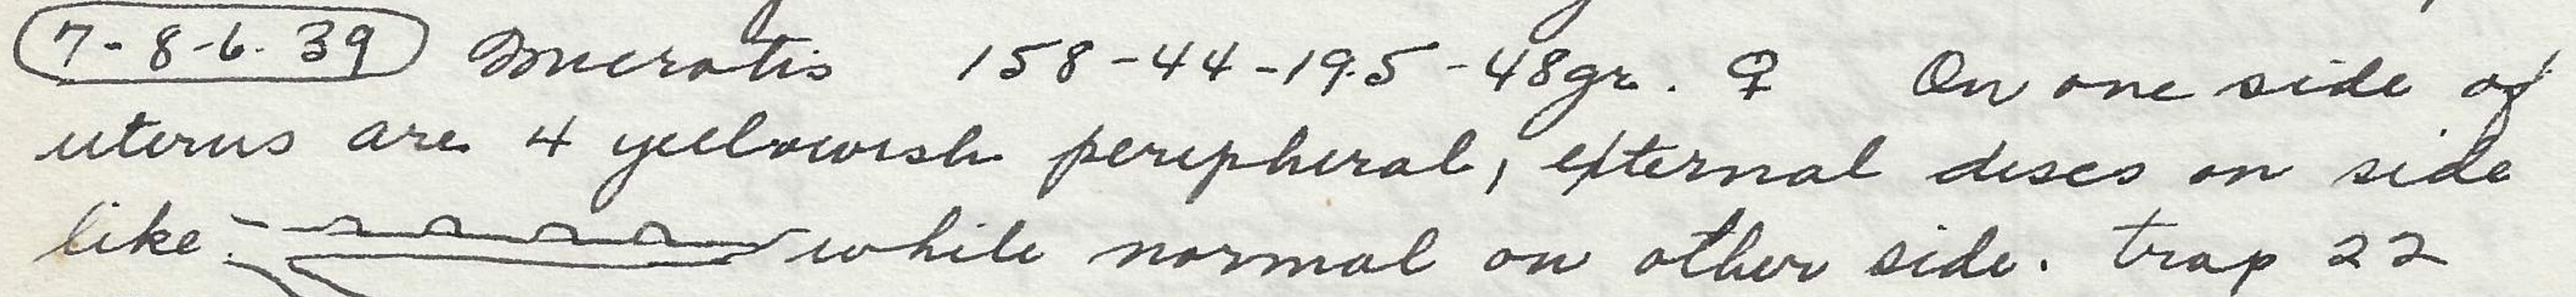 7-8-6-39 Microtis 158-44-19.5-48gr. ♀ On one side of
uterus are 4 yellowish peripheral, external discs on side
like: while normal on other side. trap 22